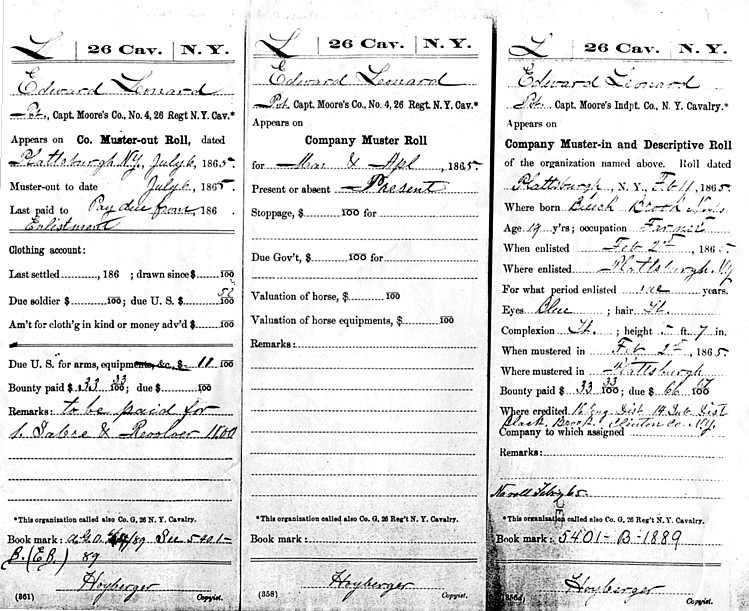 L | 26 Cav. | N. Y.
Edward Leonard
Pvt., Capt. Moore's Co., No. 4, 26 Regt N. Y. Cav.*
Appears on Co. Muster-out Roll, dated
Plattsburgh N.Y., July 6, 1865.
Muster-out to date July 6, 1865.
Last paid to Pay due from, 186
Enlistment
Clothing account:
Last settled, 186 ; drawn since $ 100
Due soldier $ 100; due U. S. $ 100
Am't for cloth'g in kind or money adv'd $ 100
Due U. S. for arms, equipments, &c., $ 11 100
Bounty paid $ 33 33/100; due $ 100
Remarks: to be paid for
1 Sabre & Revolver 11.00
*This organization called also Co. G, 26 N. Y. Cavalry.
Book mark: See 5401-
B. (E.B.) 89
Hoyberger
(361) Copyist.
L | 26 Cav. | N. Y.
Edward Leonard
Pvt., Capt. Moore's Co., No. 4, 26 Regt. N. Y. Cav.*
Appears on
Company Muster Roll
for Mar & Apl, 1865.
Present or absent Present
Stoppage, $ 100 for
Due Gov't, $ 100 for
Valuation of horse, $ 100
Valuation of horse equipments, $ 100
Remarks:
*This organization called also Co. G, 26 Reg't N. Y. Cavalry.
Book mark:
Hoyberger
(358) Copyist.
L | 26 Cav. | N. Y.
Edward Leonard
Pvt., Capt. Moore's Indpt. Co., N. Y. Cavalry.*
Appears on
Company Muster-in and Descriptive Roll
of the organization named above. Roll dated
Plattsburgh, N. Y., Feb 11, 1865.
Where born Black Brook
Age 19 y'rs; occupation Farmer
When enlisted Feb 2d, 1865
Where enlisted Plattsburgh, NY
For what period enlisted one years.
Eyes Blue; hair Lt.
Complexion Lt.; height 5 ft. 7 in.
When mustered in Feb 2d, 1865.
Where mustered in Plattsburgh
Bounty paid $ 33 33/100; due $ 66 67/100
Where credited 16 Cong. Dist. 14 Sub Dist
Black Brook Clinton Co. NY.
Company to which assigned
Remarks:
*This organization called also Co. G, 26 Reg't N. Y. Cavalry.
Book mark: 5401-B-1889
Hoyberger
Copyist.